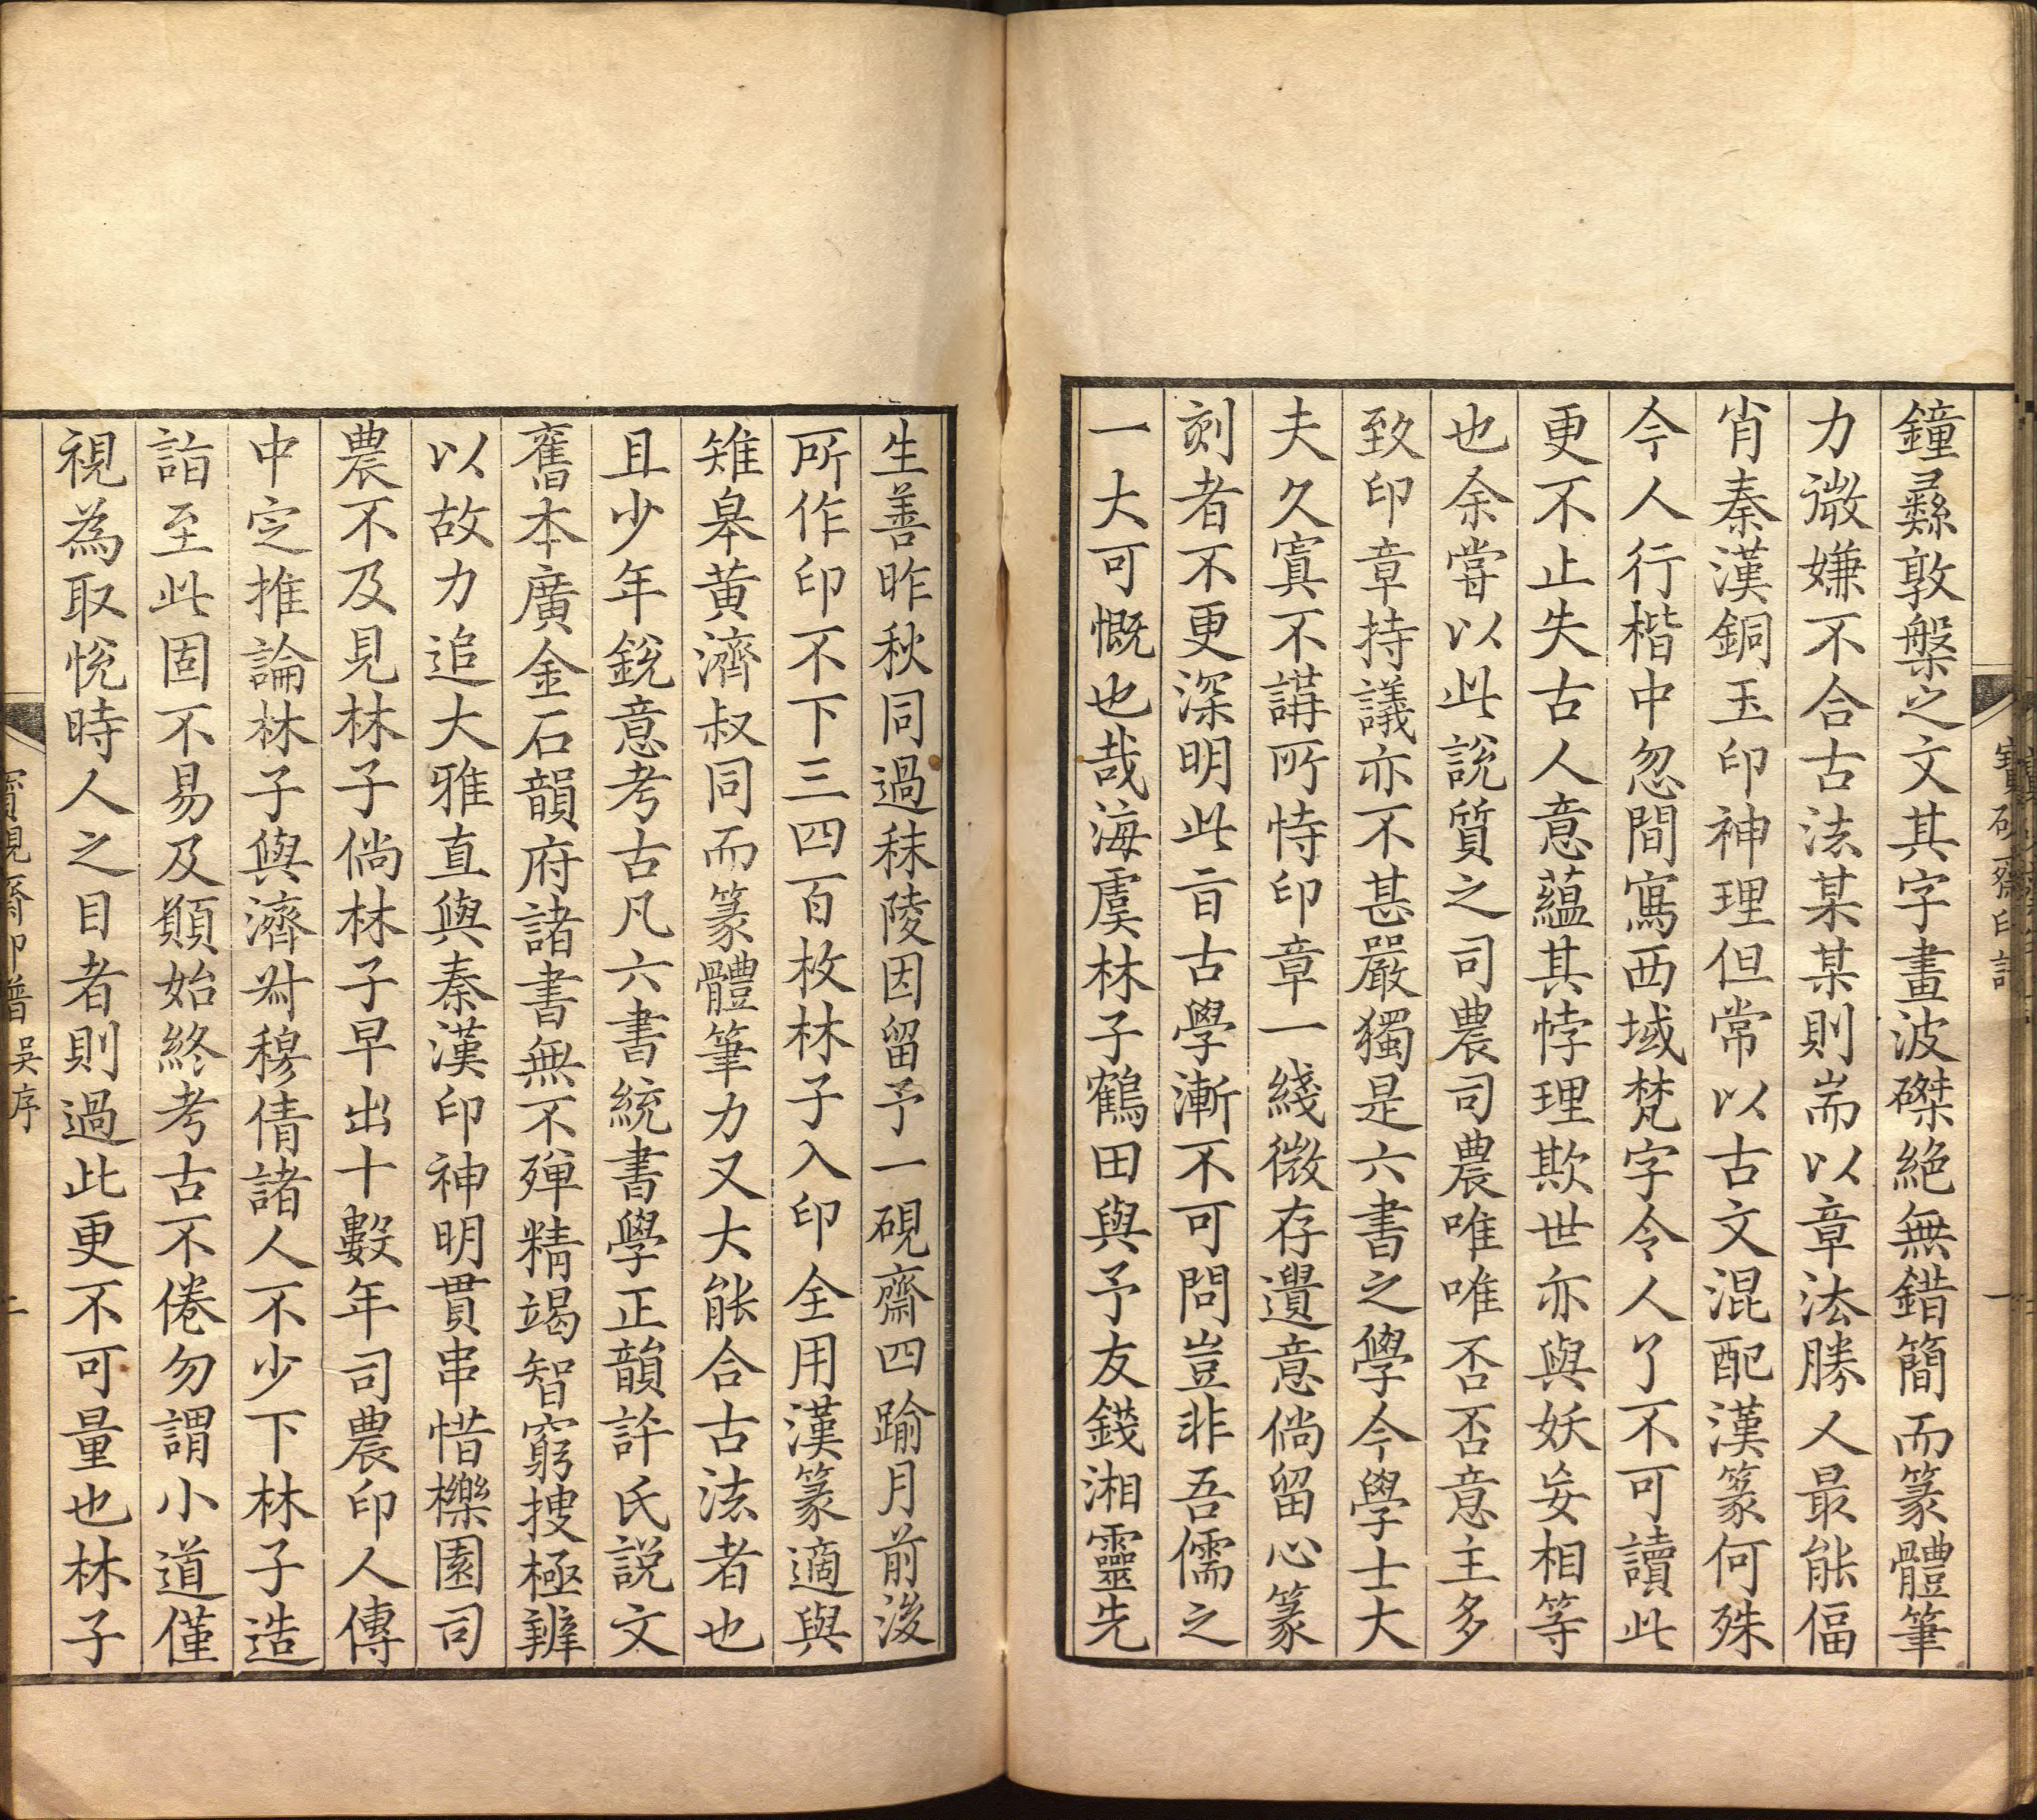 鐘彞敦槃之文其字畫波磔絕無錯簡而篆體筆
力微嫌不合古法某某則耑以章法勝人最能偪
肖秦漢銅玉印神理但常以古文混配漢篆何殊
今人行楷中忽間寫西域梵字令人了不可讀此
更不止失古人意蘊其悖理欺世亦與妖妄相等
也余嘗以此說質之司農司農唯唯否否意主多
致印章持議亦不甚嚴獨是六書之學今學士大
夫久寘不講所恃印章一綫微存遺意倘留心篆
刻者不更深明此旨古學漸不可問豈非吾儒之
一大可慨也哉海虞林子鶴田與予友錢湘靈先
生善昨秋同過秣陵因留予一硯齋四踰月前後
所作印不下三四百枚林子入印全用漢篆適與
雉皋黄濟叔同而篆體筆力又大能合古法者也
且少年銳意考古凡六書統書學正韻許氏説文
舊本廣金石韻府諸書無不殫精竭智窮搜極辨
以故力追大雅直與秦漢印神明貫串惜櫟園司
農不及見林子倘林子早出十數年司農印人傳
中定推論林子與濟叔穆倩諸人不少下林子造
詣至此固不易及顧始終考古不倦勿謂小道僅
視為取悅時人之目者則過此更不可量也林子
寶硯齋印譜 吳序 二